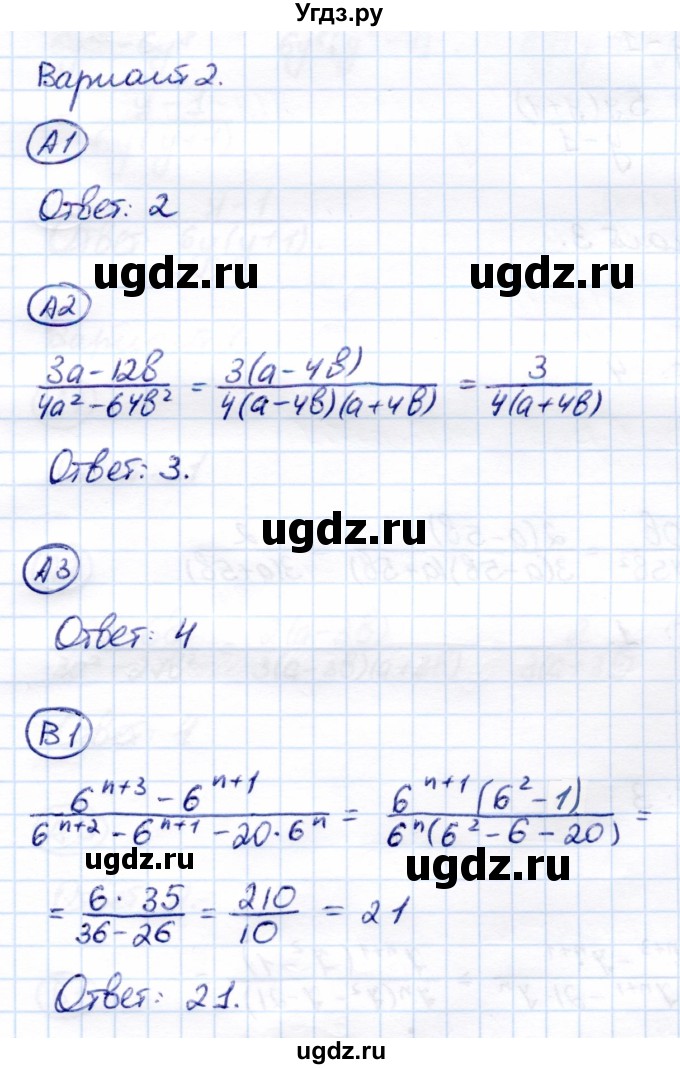 Угдз.ру
Вариант 2.
А1
Ответ: 2
ugdz.ru ugdz.ru
А2
(3a-12b)/(4a²-64b²) = (3(a-4b))/(4(a-4b)(a+4b)) = 3/(4(a+4b))
Ответ: 3.
ugdz.ru
А3
Ответ: 4
В1
(6ⁿ⁺³ - 6ⁿ⁺¹)/(6ⁿ⁺² - 6ⁿ⁺¹ - 20·6ⁿ) = (6ⁿ⁺¹(6²-1))/(6ⁿ(6²-6-20)) =
ugdz.ru ugdz.ru
= (6·35)/(36-26) = 210/10 = 21
Ответ: 21.
ugdz.ru